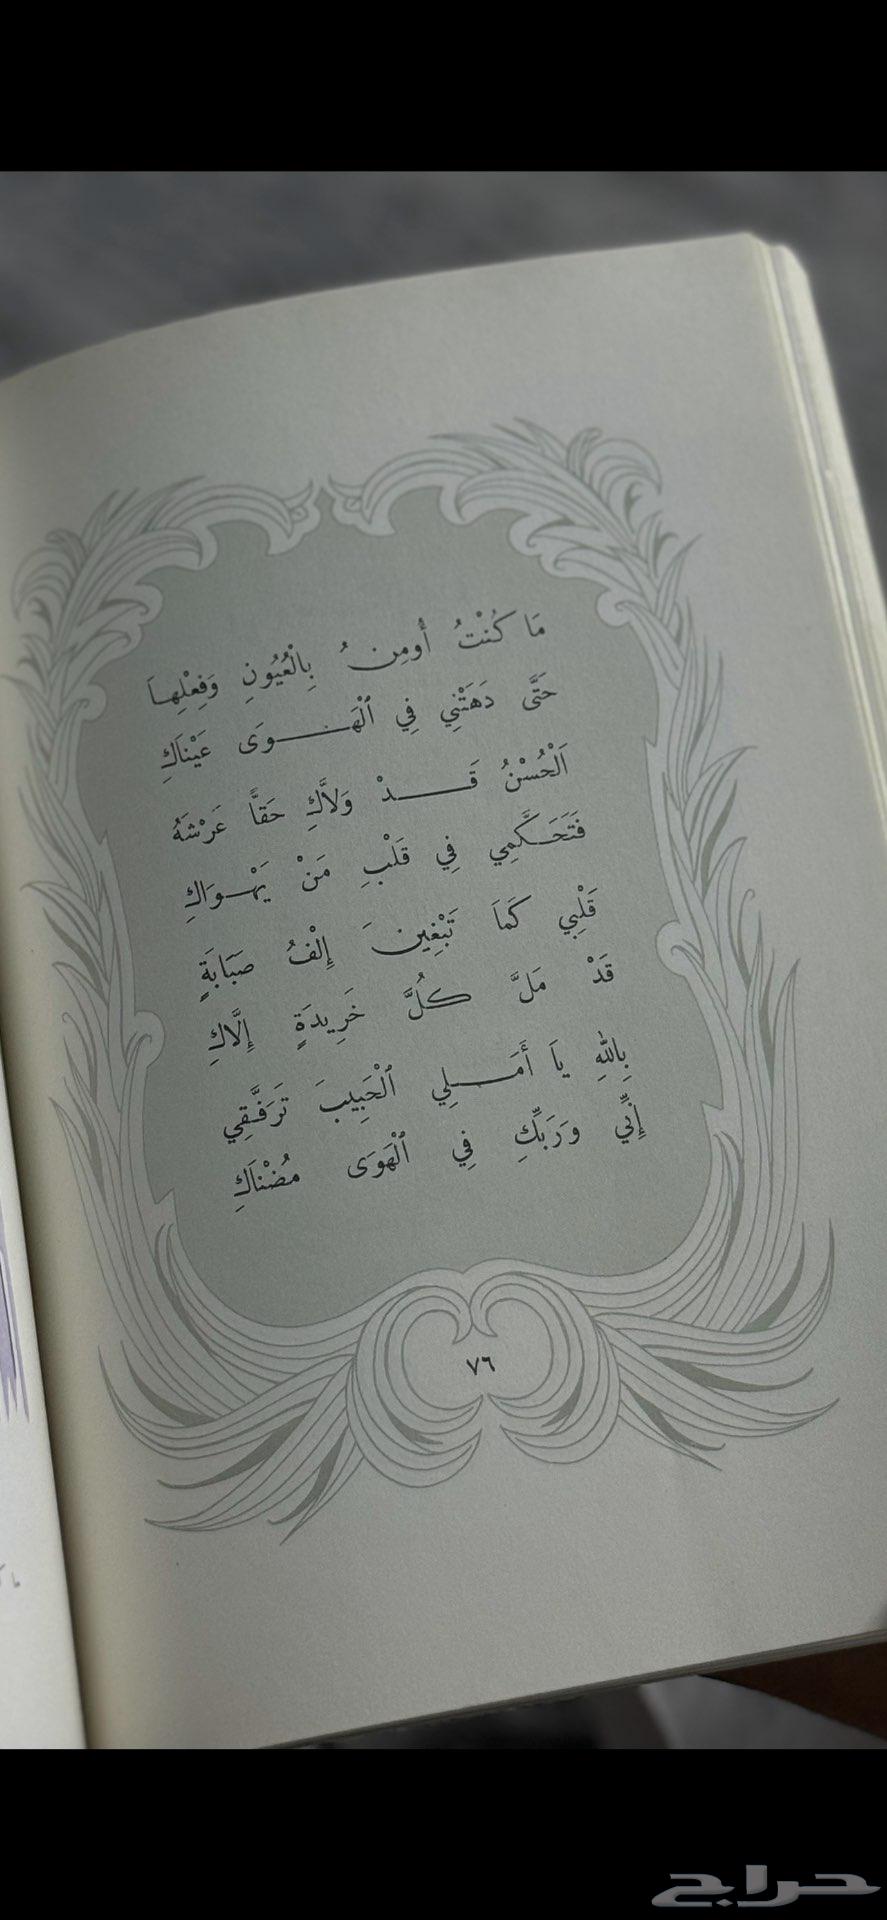 مَا كُنْتُ أُومِنُ بِالْعُيُونِ وَفِعْلِهَا
حَتَّى دَهَتْنِي فِي ٱلْهَـوَى عَيْنَاكِ
اَلْحُسْنُ قَـدْ وَلاَّكِ حَقاًّ عَرْشَهُ
فَتَحَكَّمِي فِي قَلْبِ مَنْ يَهْـوَاكِ
قَلْبِي كَمَا تَبْغِينَ إِلْفُ صَبَابَةٍ
قَدْ مَلَّ كُلَّ خَرِيدَةٍ إِلَّاكِ
بِاللهِ يَا أَمَـلِي ٱلْحَبِيبَ تَرَفَّقِي
إِنِّي وَرَبِّكِ فِي ٱلْهَوَى مُضْنَاكِ
٧٦
حراج